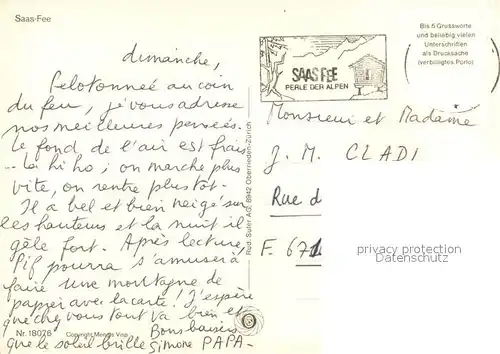 Saas-Fee
dimanche,
Pelotonnée au coin
du feu, je vous adresse
nos meilleures pensées.
Le fond de l'air est frais
-- la hi ho ; on marche plus
vite, on rentre plus tôt -
Il a bel et bien neigé sur
les hauteurs et la nuit il
gèle fort. Après lecture,
Pif pourra s'amuser à
faire une montagne de
papier avec la carte ! J'espère
que chez vous tout va bien et
que le soleil brille
Bons baisers
Simone PAPA -
Nr. 18076
Copyright
Rud. Suter AG, 8942 Oberrieden-Zürich
SAAS FEE
PERLE DER ALPEN
Bis 5 Grussworte
und beliebig vielen
Unterschriften
als Drucksache
(verbilligtes Porto)
Monsieur et Madame
J. M. CLADI
Rue d
F. 671
privacy protection
Datenschutz